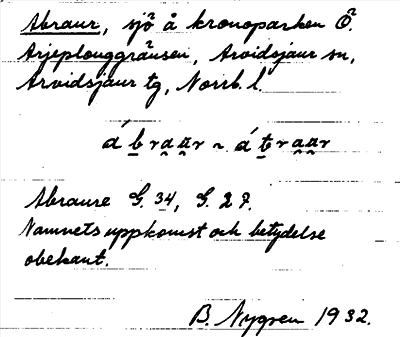 Abraur, sjö å kronoparken Ö.
Arjeplouggränsen, Arvidsjaur sn,
Arvidsjaur tg, Norrb. l.
á b̲ r a̯ a̯ r ~ á t̲ r a̯ a̯ r
Abraure G. 34, G. 27.
Namnets uppkomst och betydelse
obekant.
B. Nygren 1932.